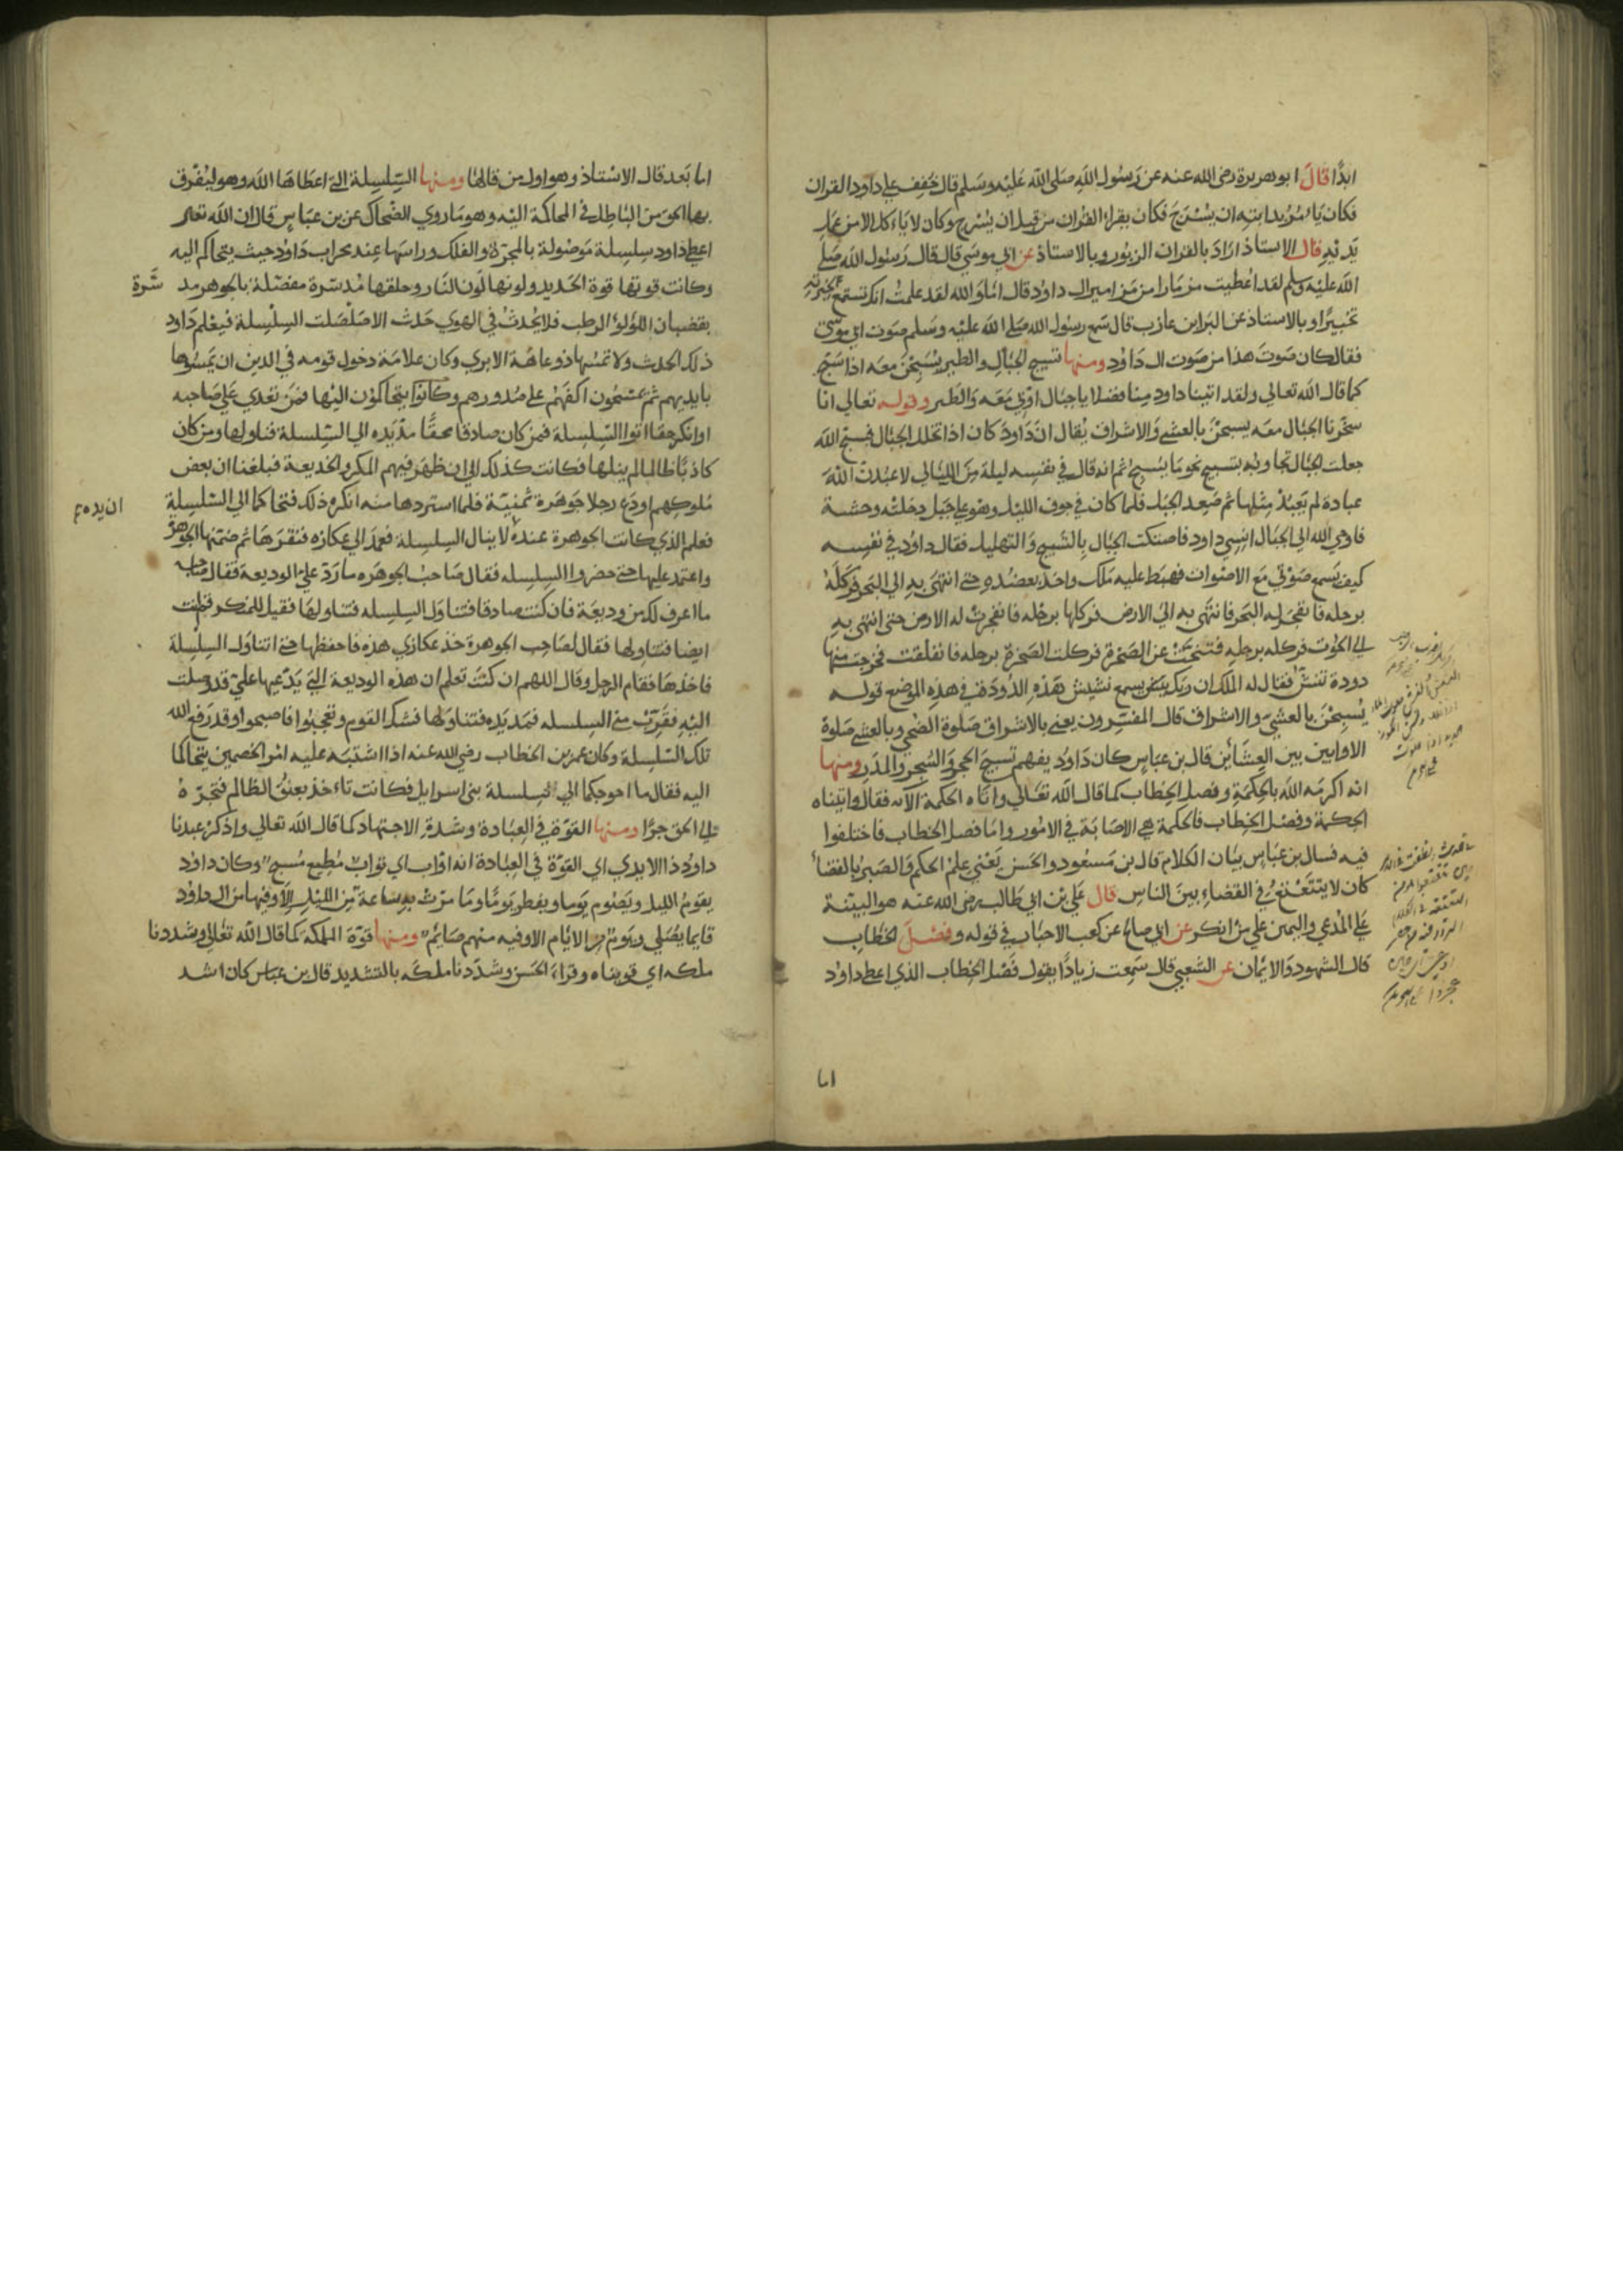 ابدًا قال ابو هريرة رضى الله عنه عن رسول الله صلى الله عليه وسلم قال خفف على داود القران
فكان ياءمر بدابته ان يسرج فكان يقراء القران من قبل ان يسرج وكان لا ياءكل الا من عمل
يديه قال الاستاذ اراد بالقران الزبور وبالاستاذ عن ابي موسي قال قال رسول الله صلي
الله عليه وسلم لقد اعطيت مزمارا من مزامير ال داود قال اما والله لقد علمت انك تستمع لحبرته
تحبيرًا وبالاستاذ عن البرا بن عازب قال سمع رسول الله صلي الله عليه وسلم صوت ابي موسي
فقال كان صوت هذا من صوت ال داود ومنها تسبيح الجبال والطير يسبحن معه اذا سبح
كما قال الله تعالي ولقد اتينا داود منا فضلا يا جبال اوبي معه والطير وقوله تعالي انا
سخرنا الجبال معه يسبحن بالعشي والاشراق يقال ان داود كان اذا تخلل الجبال فسبح الله
جعلت الجبال تجاوبه بتسبيح نحو ما يسبح ثم انه قال في نفسه ليلة من الليالي لاعبدن الله
عبادة لم يعبد مثلها ثم صعد الجبل فلما كان في جوف الليل وهو علي جبل دخلته وحشة
فاوحي الله الي الجبال انسي داود فاصتكت الجبال بالتسبيح والتهليل فقال داود في نفسه
كيف تسمع صوتي مع الاصوات فهبط عليه ملك واخذ بعضده حتي انتهى به الي البحر فركله
برجله فانفجر له البحر فانتهى به الي الارض فركلها برجله فانفجرت له الارض حتى انتهى به
الي الحوت فركله برجله فتنحت عن الصخرة فركلت الصخرة برجله فانفلقت فخرجت منها
دودة تنش فقال له الملك ان ربك يسمع نشيش هذه الدودة في هذه الموضع قوله
يسبحن بالعشي والاشراق قال المفسرون يعني بالاشراق صلوة الضحي وبالعشي صلوة
الاوابين بين العشائين قال بن عباس كان داود يفهم تسبيح الحجر والشجر والمدر ومنها
انه اكرمه الله بالحكمة وفصل الخطاب كما قال الله تعالي واتاه الحكمة الاية فقال واتيناه
الحكمة وفصل الخطاب فالحكمة هي الاصابة في الامور واما فصل الخطاب فاختلفوا
فيه فسال بن عباس بيان الكلام قال بن مسعود والحسن يعني علم الحكم والصبر بالقضاء
كان لا يتتعتع في القضاء بين الناس قال علي بن ابي طالب رضى الله عنه هو البينة
علي المدعي واليمين علي من انكر عن ابي صالح عن كعب الاحباب في قوله وفصل الخطاب
قال الشهود والايمان عن الشعبي قال سمعت زيادًا يقول فصل الخطاب الذي اعطي داود
اما
اما بعد قال الاستاذ وهو اول من قالها ومنها السلسلة التي اعطاها الله وهو ليفرق
بها الحق من الباطل في المحاكمة اليه وهو ما روي الضحاك عن بن عباس قال ان الله تعالى
اعطي داود سلسلة موصولة بالمجرة والفلك وراسها عند محراب داود حيث يتحاكم اليه
وكانت قوتها قوة الحديد ولونها لون النار وحلقها مدسرة مفصلة بالجوهر مد سرة
بقضبان اللؤلؤ الرطب فلا يحدث في الهوي حدث الا صلصلت السلسلة فيعلم داود
ذلك الحدث ولا تمسها ذو عاهة الا بري وكان علامة دخول قومه في الدين ان يمسوها
بايديهم ثم يمسحون اكفهم علي صدورهم وكانوا يتحاكمون اليها فمن تعدي علي صاحبه
او انكر حقا اتوا السلسلة فمن كان صادقا محقًا مد يده الي السلسلة فناولها ومن كان
كاذبًا ظالما لم ينلها فكانت كذلك الي ان ظهر فيهم المكر والخديعة فبلغنا ان بعض
ملوكهم اودع رجلا جوهرة ثمينة فلما استردها منه انكره ذلك فتحاكما الي السلسلة
ان يده
فعلم الذي كانت الجوهرة عنده لا ينال السلسلة فعمد الي عكازه فنقرها ثم ضمنها الجوهرة
واعتمد عليها حتي حضروا السلسله فقال صاحب الجوهره ما رد علي الوديعة فقال صاحبه
ما اعرف لك من وديعة فان كنت صادقا فتناول السلسله فتناولها فقيل للمنكر قم انت
ايضا فتناولها فقال لصاحب الجوهرة خذ عكازي هذه فاحفظها حتي اتناول السلسلة
فاخذها فقام الرجل وقال اللهم ان كنت تعلم ان هذه الوديعة التي يدعيها علي قد وصلت
اليه فقرب مني السلسله فمد يده فتناولها فشكر القوم وتعجبوا فاصبحوا وقد رفع الله
تلك السلسلة وكان عمر بن الخطاب رضي الله عنه اذا اشتبه عليه امر الخصمين يتحاكما
اليه فقال ما احوجكما الي سلسلة بني اسرايل فكانت تاءخذ بعنق الظالم فتجره
الي الحق جرًا ومنها القوة في العبادة وشدة الاجتهاد كما قال الله تعالي واذكر عبدنا
داود ذا الايدي اي القوة في العبادة انه اواب اي تواب مطيع مسبح وكان داود
يقوم الليل ويصوم يوما ويفطر يومًا وما مرت به ساعة من الليل الا وفيها من ال داود
قايما يصلي ويوم من الايام الا وفيه منهم صايم ومنها قوة المملكة كما قال الله تعالى وشددنا
ملكه اي قويناه وقراء الحسن وشددنا ملكه بالتشديد قال بن عباس كان اشد